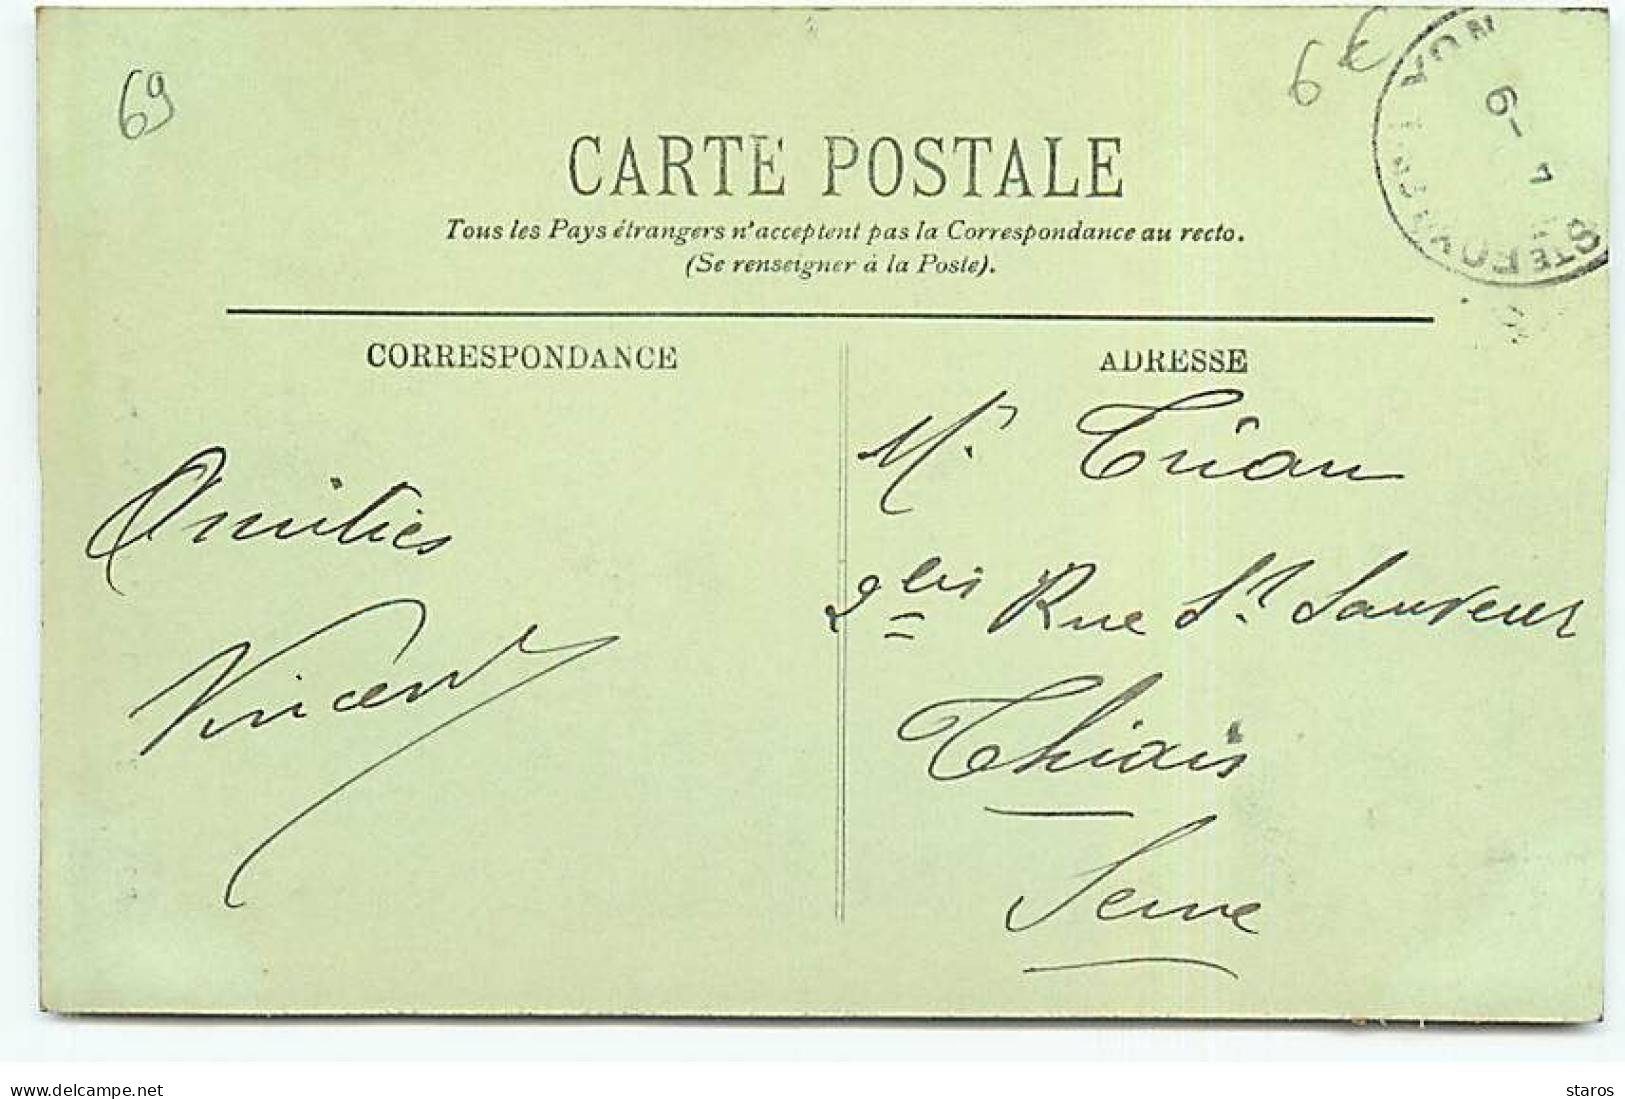 69
6€
CARTE POSTALE
Tous les Pays étrangers n'acceptent pas la Correspondance au recto.
(Se renseigner à la Poste).
CORRESPONDANCE
ADRESSE
Amitiés
Vincent
Mr Trian
2bis Rue St Sauveur
Thiais
Seine
STE FOY LES LYON
6-
www.delcampe.net
staros